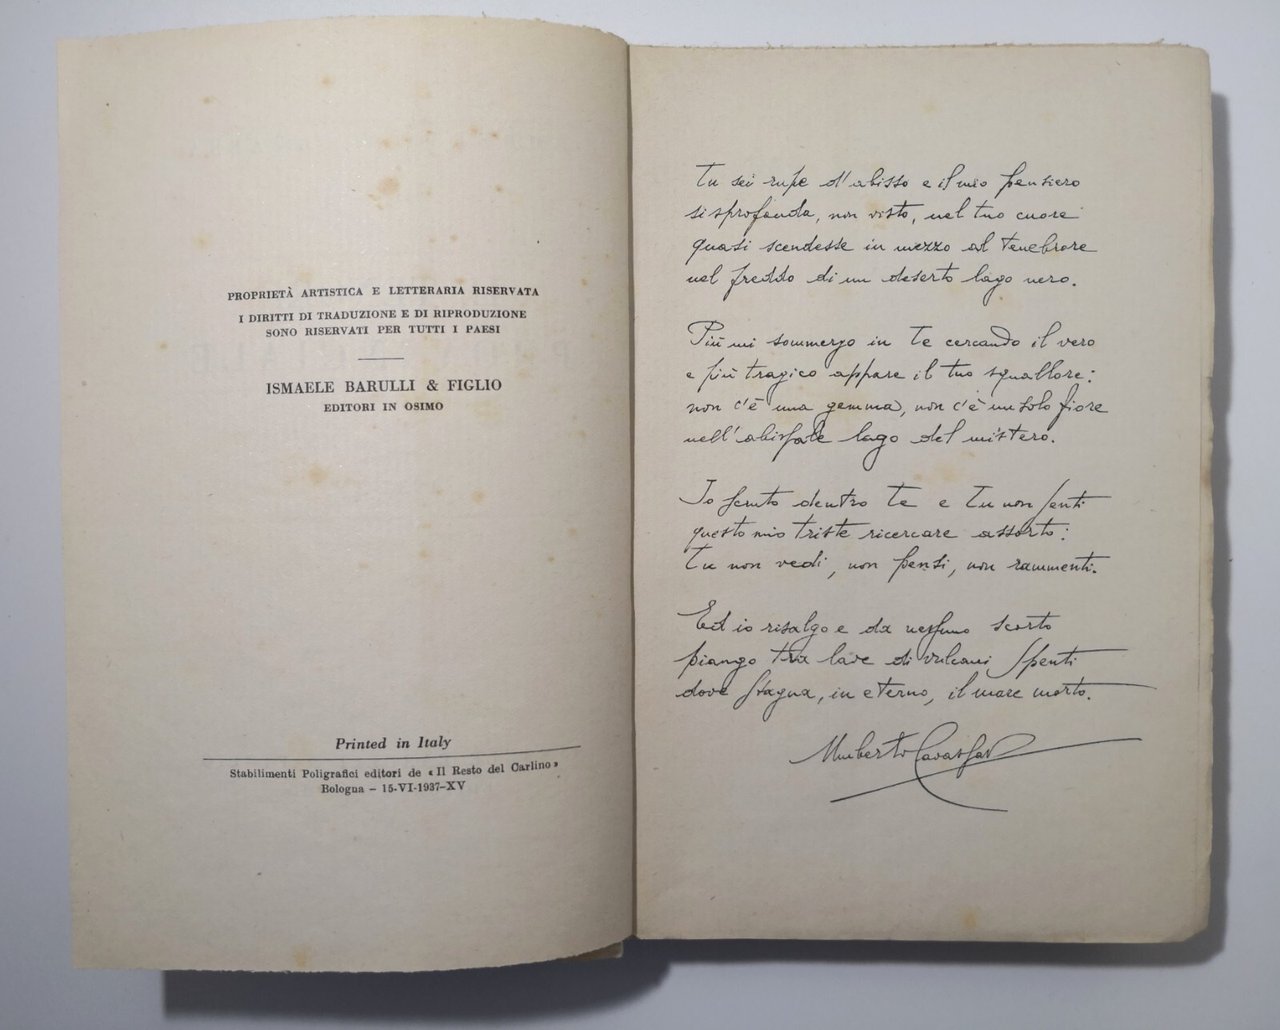 PROPRIETÀ ARTISTICA E LETTERARIA RISERVATA
I DIRITTI DI TRADUZIONE E DI RIPRODUZIONE
SONO RISERVATI PER TUTTI I PAESI
ISMAELE BARULLI & FIGLIO
EDITORI IN OSIMO
Printed in Italy
Stabilimenti Poligrafici editori de « Il Resto del Carlino »
Bologna – 15-VI-1937-XV
Tu sei rupe d'abisso e il mio pensiero
si sprofonda, non visto, nel tuo cuore
quasi scendesse in mezzo al tenebrore
nel freddo di un deserto lago nero.
Più mi sommergo in te cercando il vero
e più tragico appare il tuo squallore:
non c'è una gemma, non c'è un solo fiore
nell'abissale lago del mistero.
Io scruto dentro te e tu non senti
questo mio triste ricercare assorto:
tu non vedi, non pensi, non rammenti.
Ed io risalgo e da nessuno scorto
piango tra lave di vulcani spenti
dove stagna, in eterno, il mare morto.
Umberto